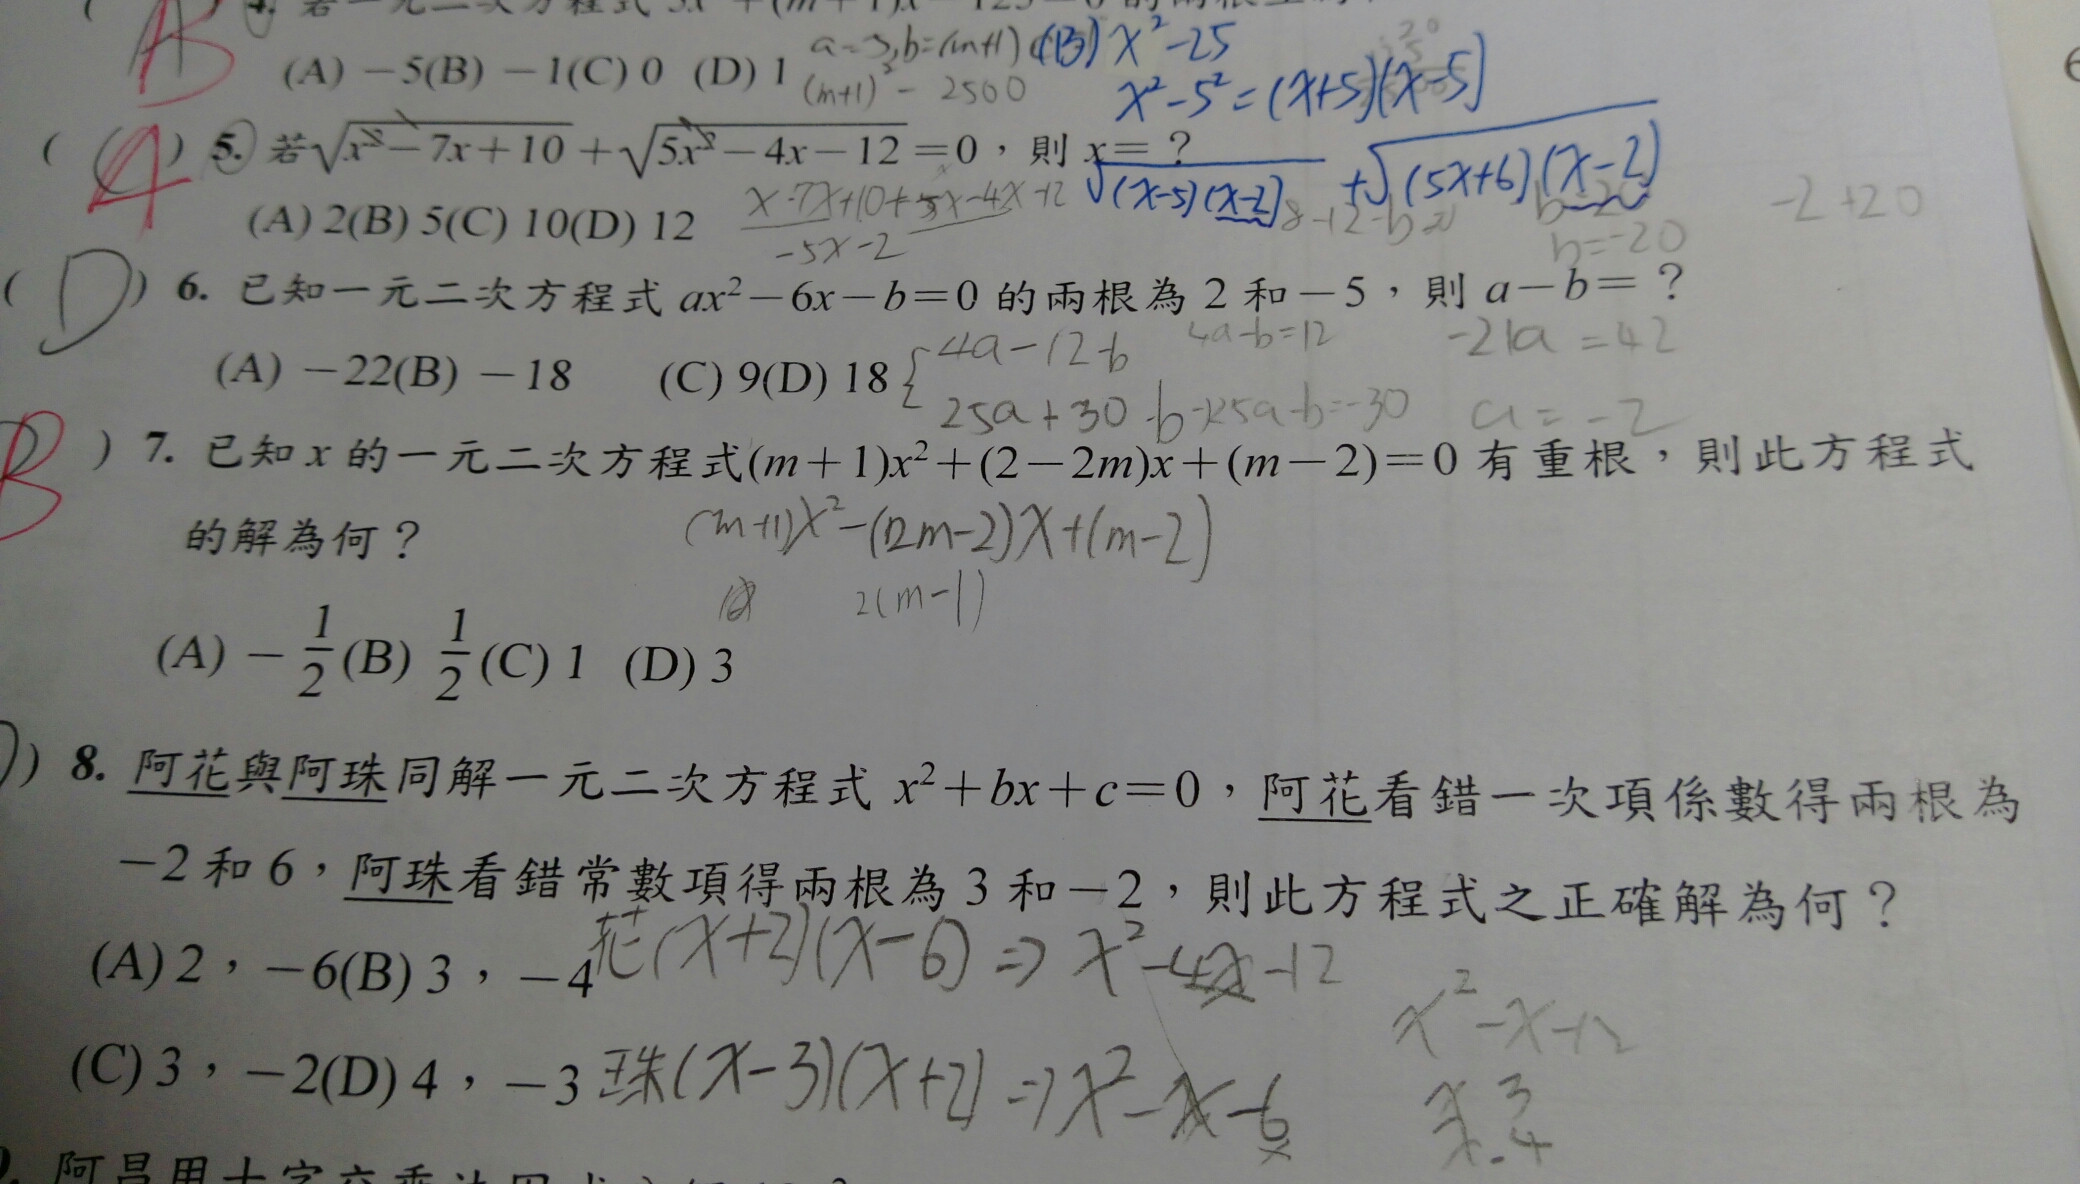 4. 若一元二次方程式 3x²+(m+1)x-125=0 的兩根
(A) -5(B) -1(C) 0 (D) 1 a=3, b=(m+1) (B) x²-25
(m+1)² - 2500 x²-5²=(x+5)(x-5)
( A ) 5. 若√x²-7x+10 + √5x²-4x-12 = 0,則 x= ?
√(x-5)(x-2) + √(5x+6)(x-2)
(A) 2(B) 5(C) 10(D) 12 x-7x+10+5x-4x-12
-5x-2
b=-20
-2+20
( D ) 6. 已知一元二次方程式 ax²-6x-b=0 的兩根為 2 和-5,則 a-b= ?
(A) -22(B) -18 (C) 9(D) 18 4a-12-b 4a-b=12 -21a=42
25a+30-b 25a-b=-30 a=-2
B ) 7. 已知 x 的一元二次方程式(m+1)x²+(2-2m)x+(m-2)=0 有重根,則此方程式
的解為何?
(m+1)x²-(2m-2)x+(m-2)
2(m-1)
(A) -1/2(B) 1/2(C) 1 (D) 3
) 8. 阿花與阿珠同解一元二次方程式 x²+bx+c=0,阿花看錯一次項係數得兩根為
-2 和 6,阿珠看錯常數項得兩根為 3 和-2,則此方程式之正確解為何?
(A) 2,-6(B) 3,-4 花(x+2)(x-6) ⇒ x²-4x-12
x²-x-12
(C) 3,-2(D) 4,-3 珠(x-3)(x+2) ⇒ x²-x-6
x 3
x -4
阿昌用十字交乘法